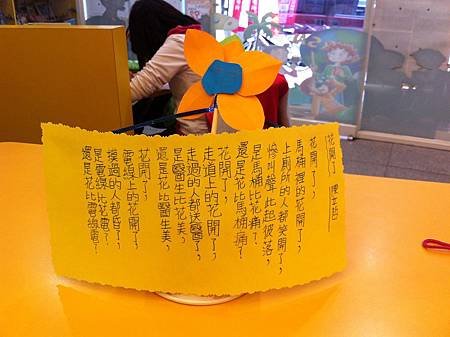 花開了
花開了，
馬桶裡的花開了，
上廁所的人都笑開了，
慘叫聲此起彼落，
是馬桶比花痛？
還是花比馬桶痛？
花開了，
走道上的花開了，
走過的人都送醫了，
是醫生比花美，
還是花比醫生美，
花開了，
電線上的花開了，
摸過的人都昏了，
是電線比花電？
還是花比電線電？